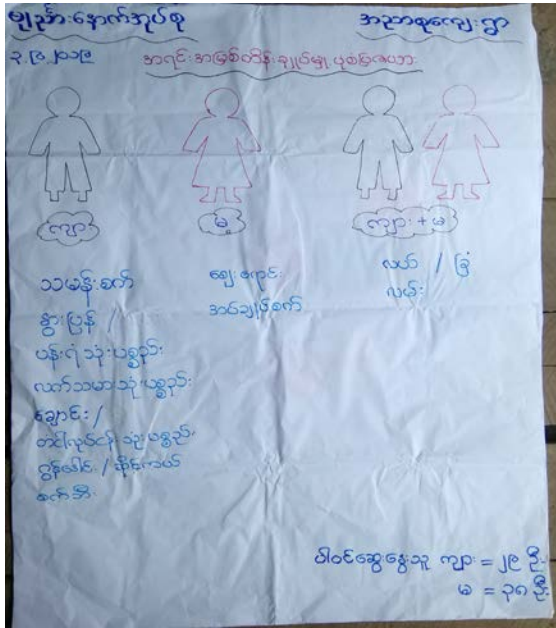 မျှည်အားနောက်အုပ်စု
အညာစုကျေးရွာ
၃.၉.၂၀၁၉
အရင်းအမြစ်ထိန်းချုပ်မှု ပုစံပြဇယား
ကျား
မ
ကျား + မ
သမန်းစက်
နွားပြန် /
ပန်းရံသုံးပစ္စည်း
လက်သမားသုံးပစ္စည်း
ချောင်း /
တငါလုပ်ငန်းသုံးပစ္စည်း
ဂွန်ပေါင် / ဆိုင်ကယ်
စက်ဘီး
ဈေးရောင်း
အပ်ချုပ်စက်
လယ် / ခြံ
လမ်း
ပါဝင်ဆွေးနွေးသူ ကျား = ၂၉ ဦး
မ = ၃၈ ဦး